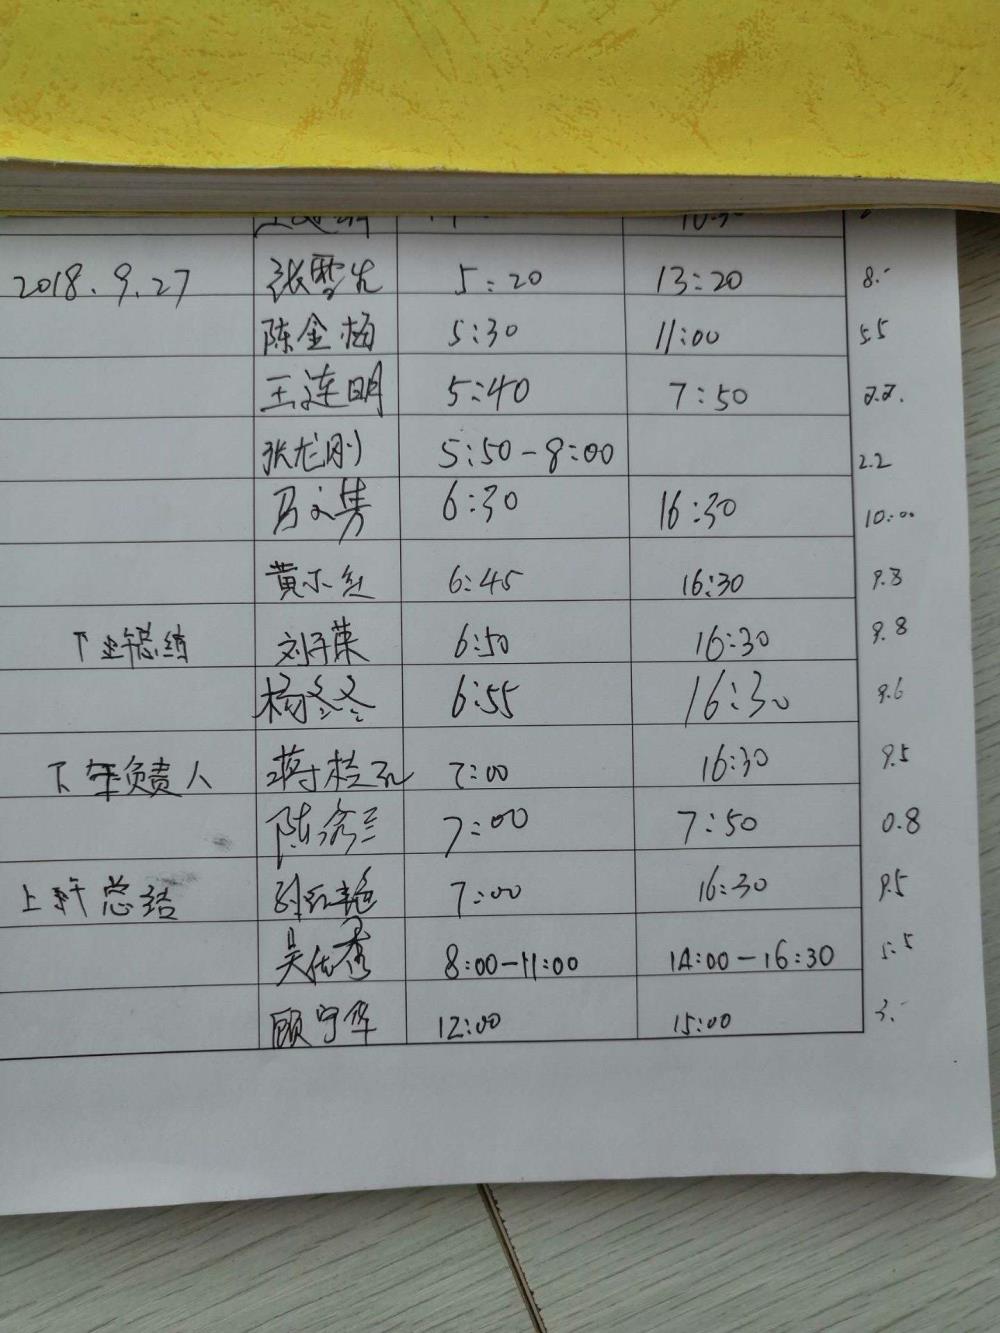 10:30
2018.9.27 张雪先 5:20 13:20 8.-
陈金杨 5:30 11:00 5.5
王连明 5:40 7:50 2.2.
张龙刚 5:50-8:00 2.2
马文隽 6:30 16:30 10:00
黄小红 6:45 16:30 9.8
下午总结 刘子荣 6:50 16:30 9.8
杨冬冬 6:55 16:30 9.6
下午负责人 蒋桂 7:00 16:30 9.5
陈 兰 7:00 7:50 0.8
上午总结 红艳 7:00 16:30 9.5
吴优秀 8:00-11:00 14:00-16:30 5.5
顾宁华 12:00 15:00 3.-